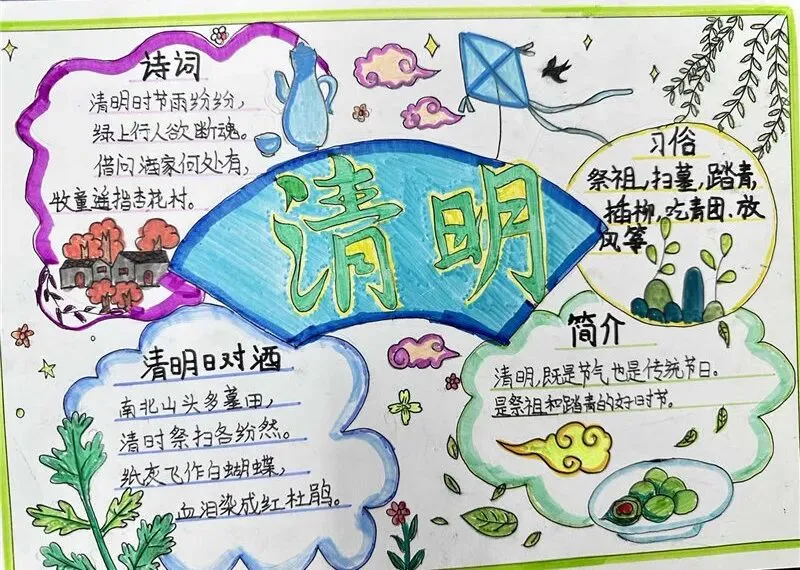 诗词
清明时节雨纷纷,
绿上行人欲断魂。
借问酒家何处有,
牧童遥指杏花村。
清明
习俗
祭祖,扫墓,踏青,
插柳,吃青团、放
风筝
清明日对酒
南北山头多墓田,
清时祭扫各纷然。
纸灰飞作白蝴蝶,
血泪染成红杜鹃。
简介
清明,既是节气也是传统节日。
是祭祖和踏青的好时节。